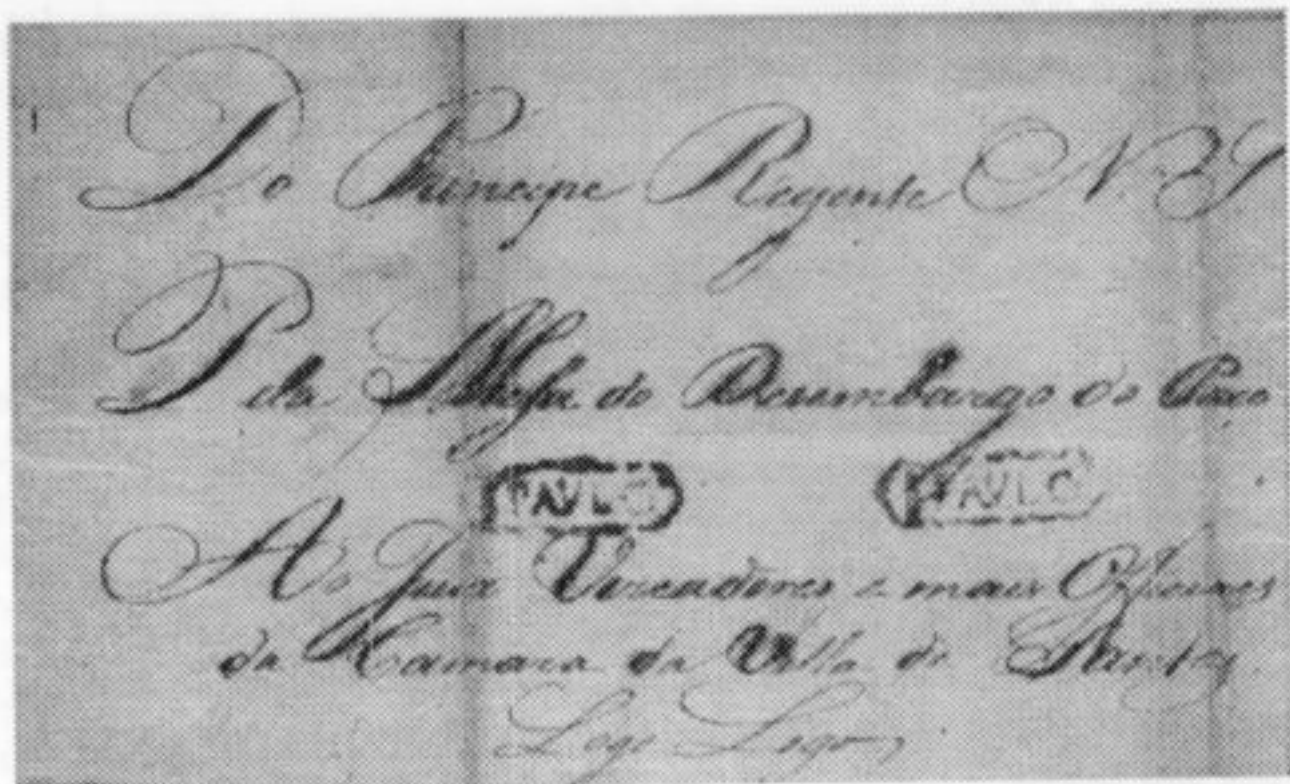 Do Principe Regente N. S
P ela Meza do Desembargo do Paco
PAVLO PAVLO
Ao Juiz Vereadores e mais Officiaes
da Camara da Villa de Santos
Logo Logo